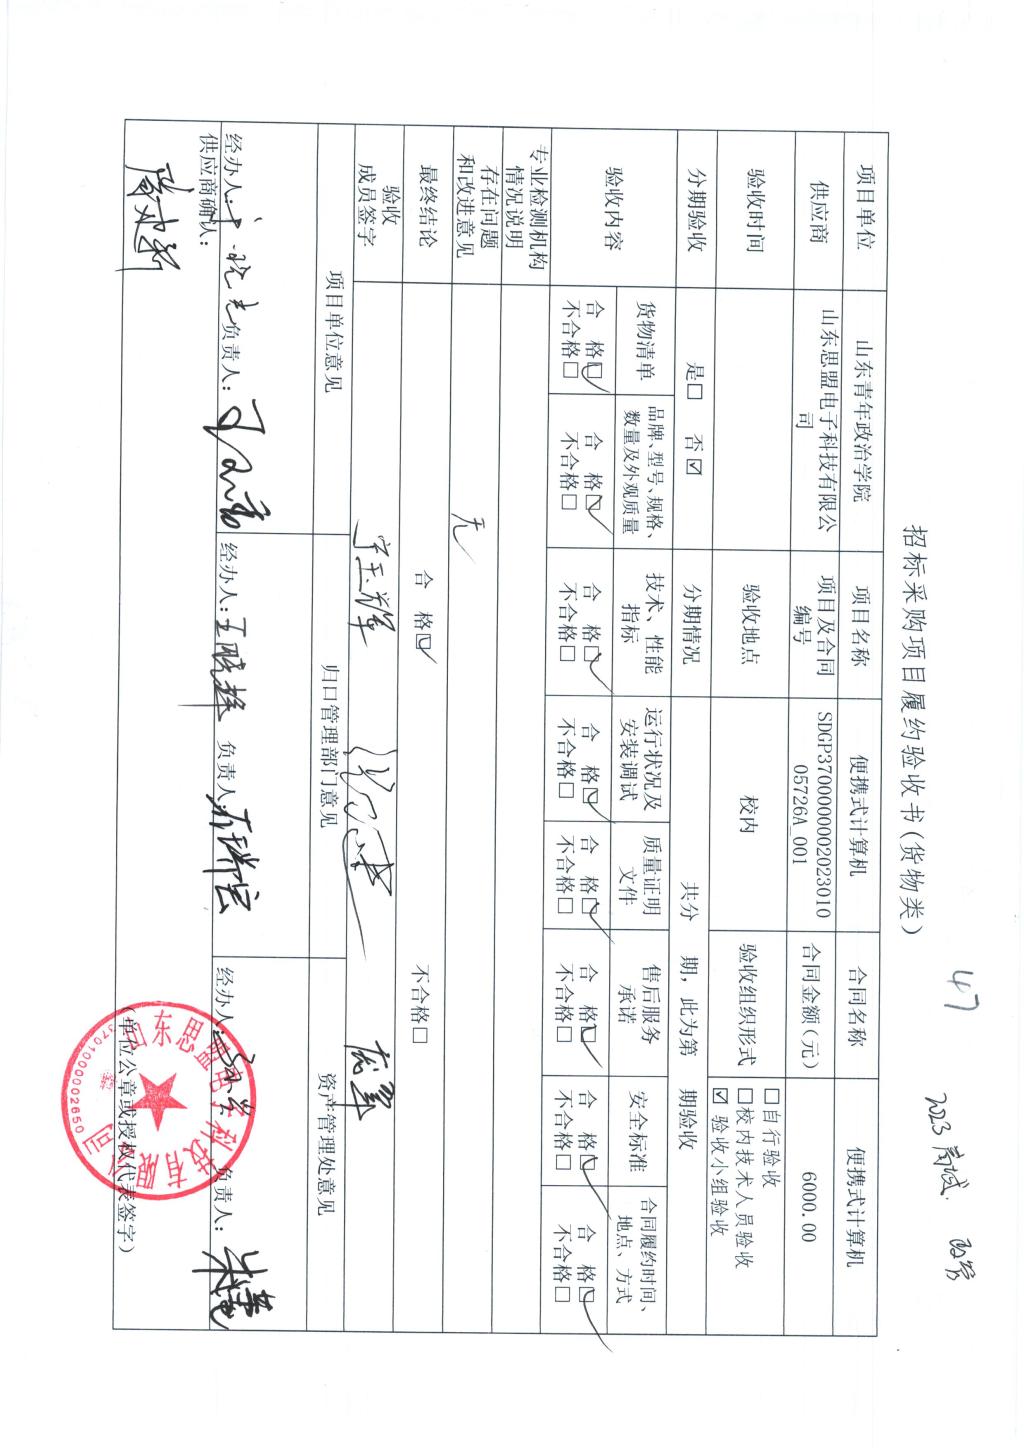 47
2023 商城
政管
招标采购项目履约验收书(货物类)
项目单位 山东青年政治学院 项目名称 便携式计算机 合同名称 便携式计算机
供应商 山东思盟电子科技有限公
司 项目及合同
编号 SDGP3700000002023010
05726A_001 合同金额(元) 6000.00
验收时间 验收地点 校内 验收组织形式 □自行验收
□校内技术人员验收
☑ 验收小组验收
分期验收 是□ 否☑ 分期情况 共分 期,此为第 期验收
验收内容 货物清单 品牌、型号、规格、
数量及外观质量 技术、性能
指标 运行状况及
安装调试 质量证明
文件 售后服务
承诺 安全标准 合同履约时间、
地点、方式
合 格☑ 合 格☑ 合 格☑ 合 格☑ 合 格☑ 合 格☑ 合 格☑ 合 格☑
不合格□ 不合格□ 不合格□ 不合格□ 不合格□ 不合格□ 不合格□ 不合格□
专业检测机构
情况说明
存在问题
和改进意见 无
最终结论 合 格☑ 不合格□
验收
成员签字
项目单位意见 归口管理部门意见 资产管理处意见
经办人: 负责人: 经办人: 王晓 负责人: 经办人: 负责人:
供应商确认:
(单位公章或授权代表签字)
山东思盟电子科技有限公司
3701000002650